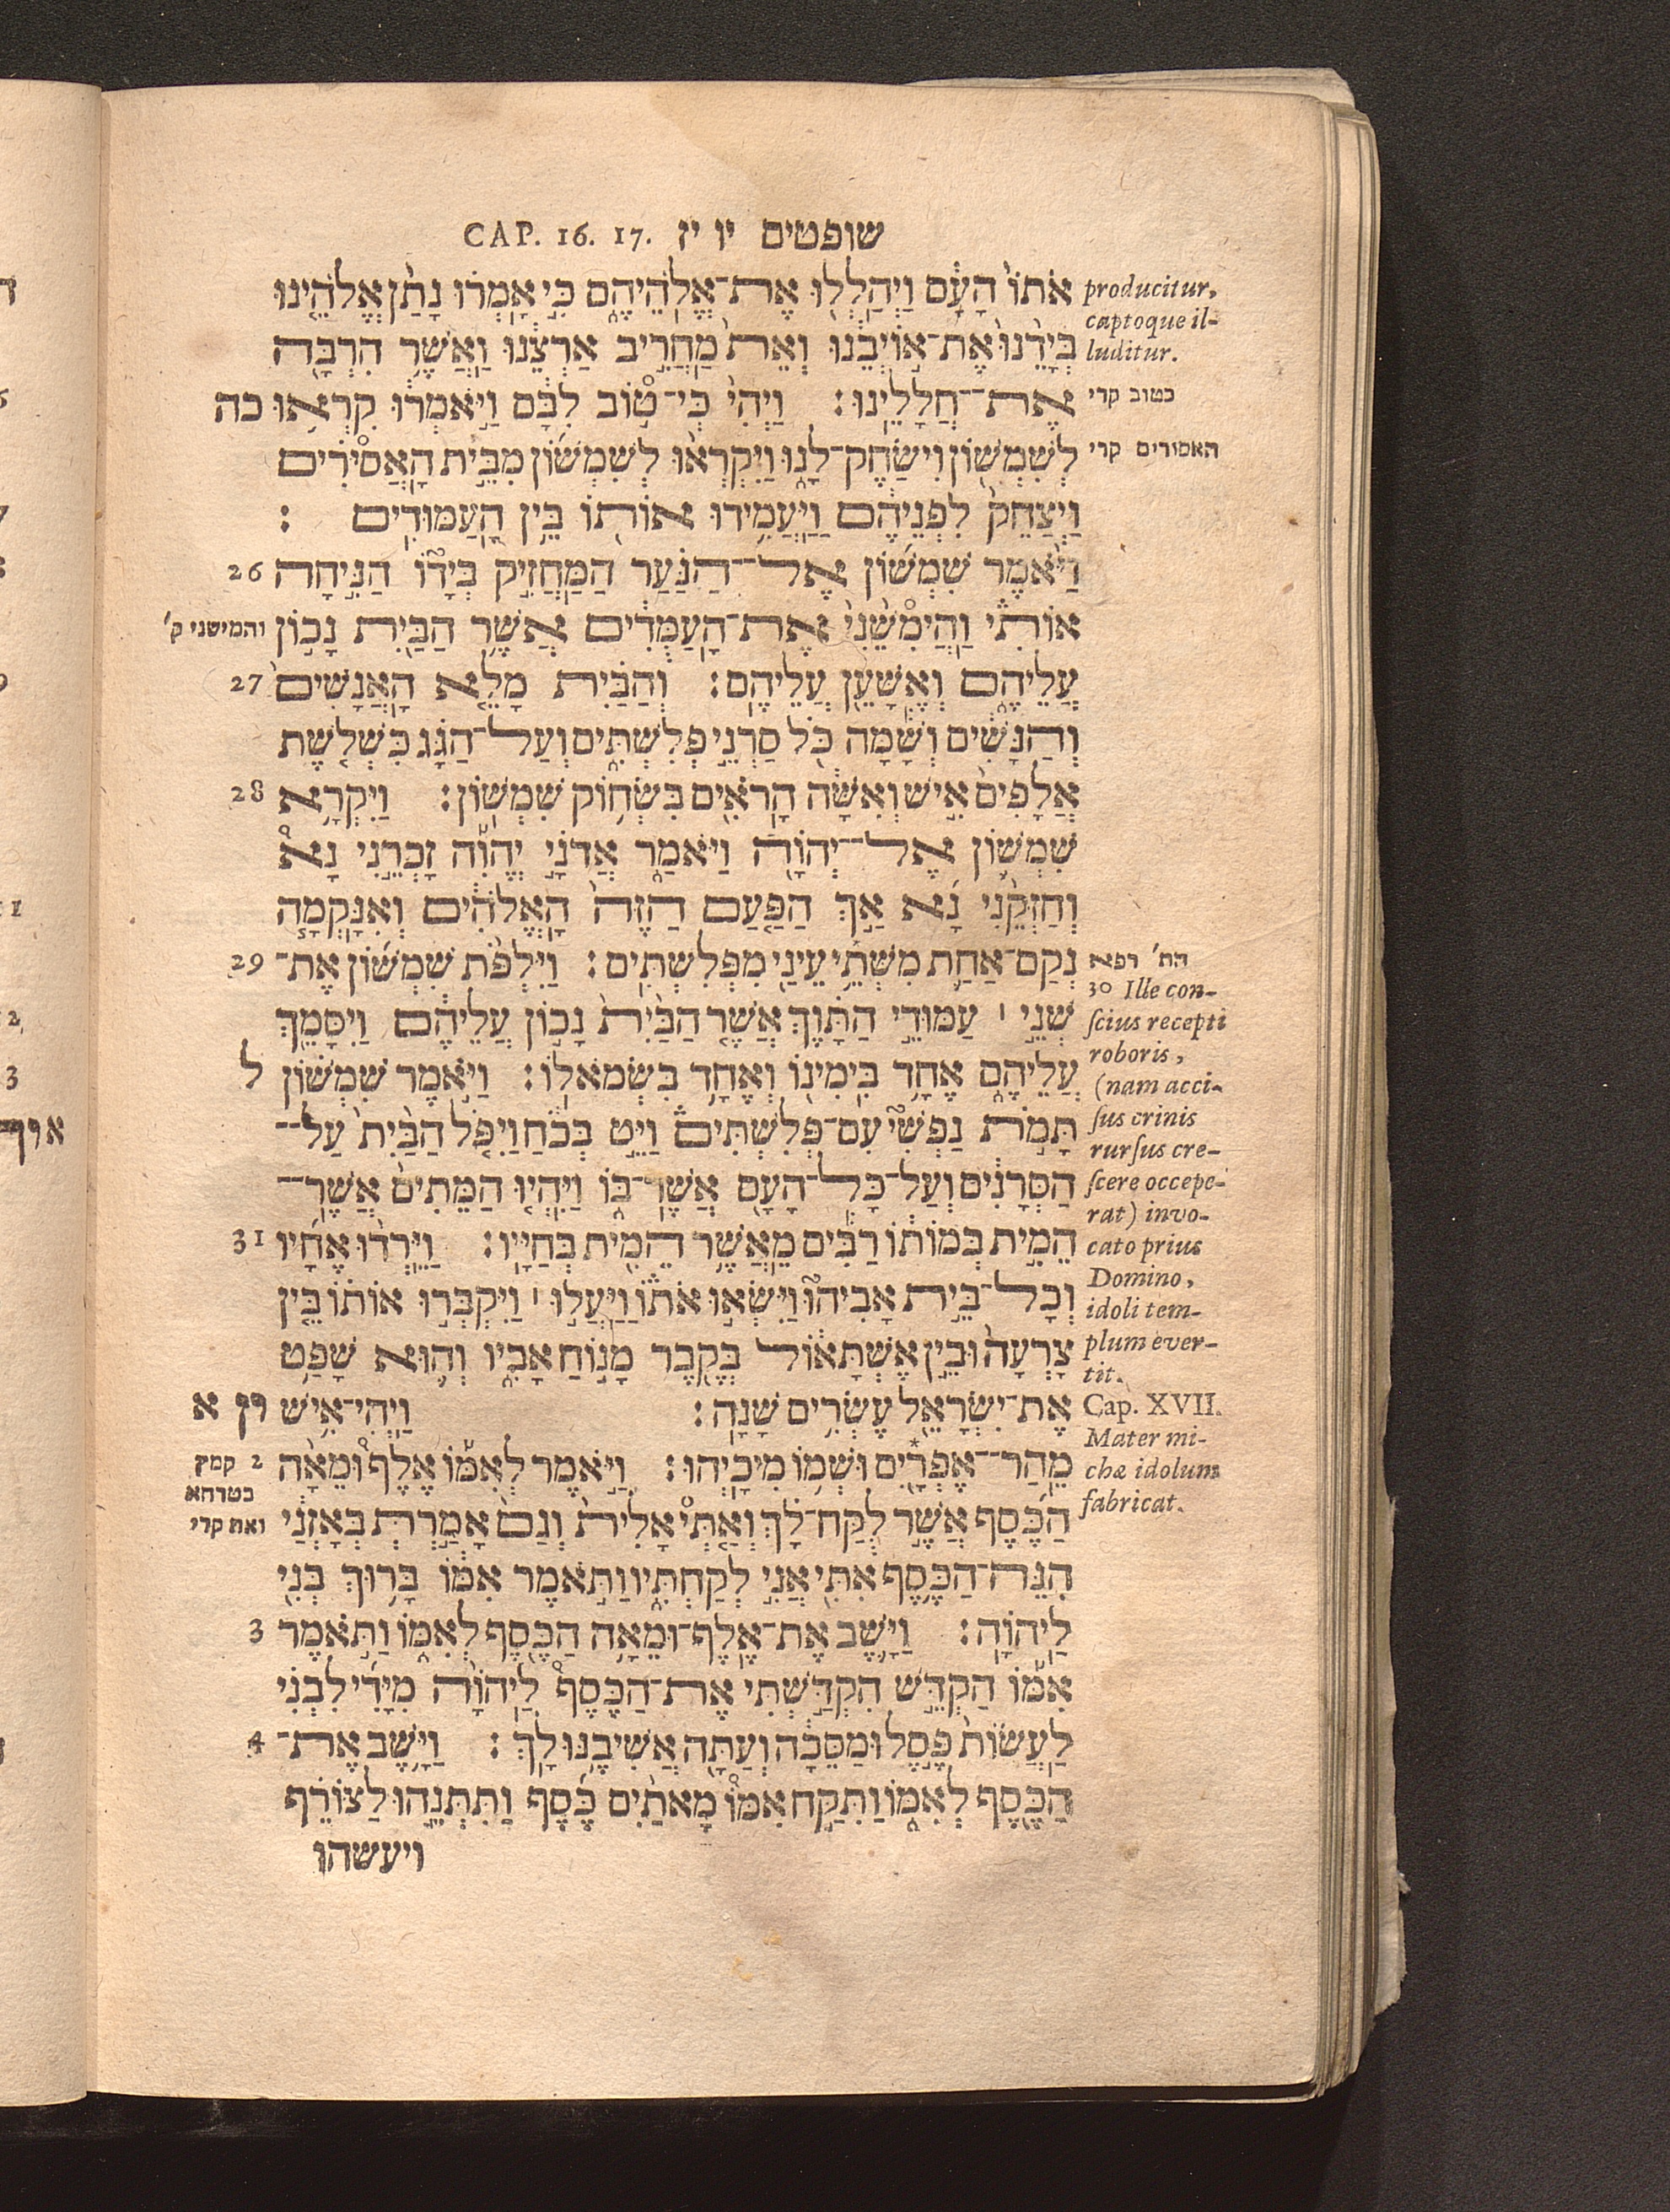 CAP. 16. 17. שופטים יו יז
אֹתוֹ הָעָם וַיְהַלְלוּ אֶת־אֱלֹהֵיהֶם כִּי אָמְרוּ נָתַן אֱלֹהֵינוּ
בְיָדֵנוּ אֶת־אוֹיְבֵנוּ וְאֵת מַחֲרִיב אַרְצֵנוּ וַאֲשֶׁר הִרְבָּה
אֶת־חֲלָלֵינוּ׃ וַיְהִי כְּי־טוֹב לִבָּם וַיֹּאמְרוּ קִרְאוּ כה
לְשִׁמְשׁוֹן וִישַׂחֶק־לָנוּ וַיִּקְרְאוּ לְשִׁמְשׁוֹן מִבֵּית הָאֲסִירִים
וַיְצַחֵק לִפְנֵיהֶם וַיַּעֲמִידוּ אוֹתוֹ בֵּין הָעַמּוּדִים ׃
וַיֹּאמֶר שִׁמְשׁוֹן אֶל־הַנַּעַר הַמַּחֲזִיק בְּיָדוֹ הַנִּיחָה 26
אוֹתִי וַהֲיִמִשֵׁנִי אֶת־הָעַמֻּדִים אֲשֶׁר הַבַּיִת נָכוֹן והמישני ק׳
עֲלֵיהֶם וְאֶשָּׁעֵן עֲלֵיהֶם׃ וְהַבַּיִת מָלֵא הָאֲנָשִׁים 27
וְהַנָּשִׁים וְשָׁמָּה כֹּל סַרְנֵי פְלִשְׁתִּים וְעַל־הַגָּג כִּשְׁלֹשֶׁת
אֲלָפִים אִישׁ וְאִשָּׁה הָרֹאִים בִּשְׂחוֹק שִׁמְשׁוֹן׃ וַיִּקְרָא 28
שִׁמְשׁוֹן אֶל־יְהֹוָה וַיֹּאמַר אֲדֹנָי יֱהֹוִה זָכְרֵנִי נָא
וְחַזְּקֵנִי נָא אַךְ הַפַּעַם הַזֶּה הָאֱלֹהִים וְאִנָּקְמָה
נְקַם־אַחַת מִשְּׁתֵי עֵינַי מִפְּלִשְׁתִּים׃ וַיִּלְפֹּת שִׁמְשׁוֹן אֶת־ 29
שְׁנֵי ׀ עַמּוּדֵי הַתָּוֶךְ אֲשֶׁר הַבַּיִת נָכוֹן עֲלֵיהֶם וַיִּסָּמֵךְ
עֲלֵיהֶם אֶחָד בִּימִינוֹ וְאֶחָד בִּשְׂמֹאלוֹ׃ וַיֹּאמֶר שִׁמְשׁוֹן ל
תָּמֹת נַפְשִׁי עִם־פְּלִשְׁתִּים וַיֵּט בְּכֹחַ וַיִּפֹּל הַבַּיִת עַל־
הַסְּרָנִים וְעַל־כָּל־הָעָם אֲשֶׁר־בּוֹ וַיִּהְיוּ הַמֵּתִים אֲשֶׁר־
הֵמִית בְּמוֹתוֹ רַבִּים מֵאֲשֶׁר הֵמִית בְּחַיָּיו׃ וַיֵּרְדוּ אֶחָיו 31
וְכָל־בֵּית אָבִיהוּ וַיִּשְׂאוּ אֹתוֹ וַיַּעֲלוּ ׀ וַיִּקְבְּרוּ אוֹתוֹ בֵּין
צָרְעָה וּבֵין אֶשְׁתָּאוֹל בְּקֶבֶר מָנוֹחַ אָבִיו וְהוּא שָׁפַט
אֶת־יִשְׂרָאֵל עֶשְׂרִים שָׁנָה׃ וַיְהִי־אִישׁ יז א
מֵהַר־אֶפְרָיִם וּשְׁמוֹ מִיכָיְהוּ׃ וַיֹּאמֶר לְאִמּוֹ אֶלֶף וּמֵאָה 2 קמץ
בטרחא
הַכֶּסֶף אֲשֶׁר לֻקַּח־לָךְ וְאַתְּי אָלִית וְגַם אָמַרְתְּ בְּאָזְנַי ואת קרי
הִנֵּה־הַכֶּסֶף אִתִּי אֲנִי לְקַחְתִּיו וַתֹּאמֶר אִמּוֹ בָּרוּךְ בְּנִי
לַיהֹוָה׃ וַיָּשֶׁב אֶת־אֶלֶף־וּמֵאָה הַכֶּסֶף לְאִמּוֹ וַתֹּאמֶר 3
אִמּוֹ הַקְדֵּשׁ הִקְדַּשְׁתִּי אֶת־הַכֶּסֶף לַיהֹוָה מִיָּדִי לִבְנִי
לַעֲשׂוֹת פֶּסֶל וּמַסֵּכָה וְעַתָּה אֲשִׁיבֶנּוּ לָךְ׃ וַיָּשֶׁב אֶת־ 4
הַכֶּסֶף לְאִמּוֹ וַתִּקַּח אִמּוֹ מָאתַיִם כֶּסֶף וַתִּתְּנֵהוּ לַצּוֹרֵף
ויעשהו
producitur,
captoque il-
luditur.
כטוב קרי
האסורים קרי
הת׳ רפא
30 Ille con-
ſcius recepti
roboris,
(nam acci-
ſus crinis
rurſus cre-
ſcere occepe-
rat) invo-
cato prius
Domino,
idoli tem-
plum ever-
tit.
Cap. XVII.
Mater mi-
chæ idolum
fabricat.